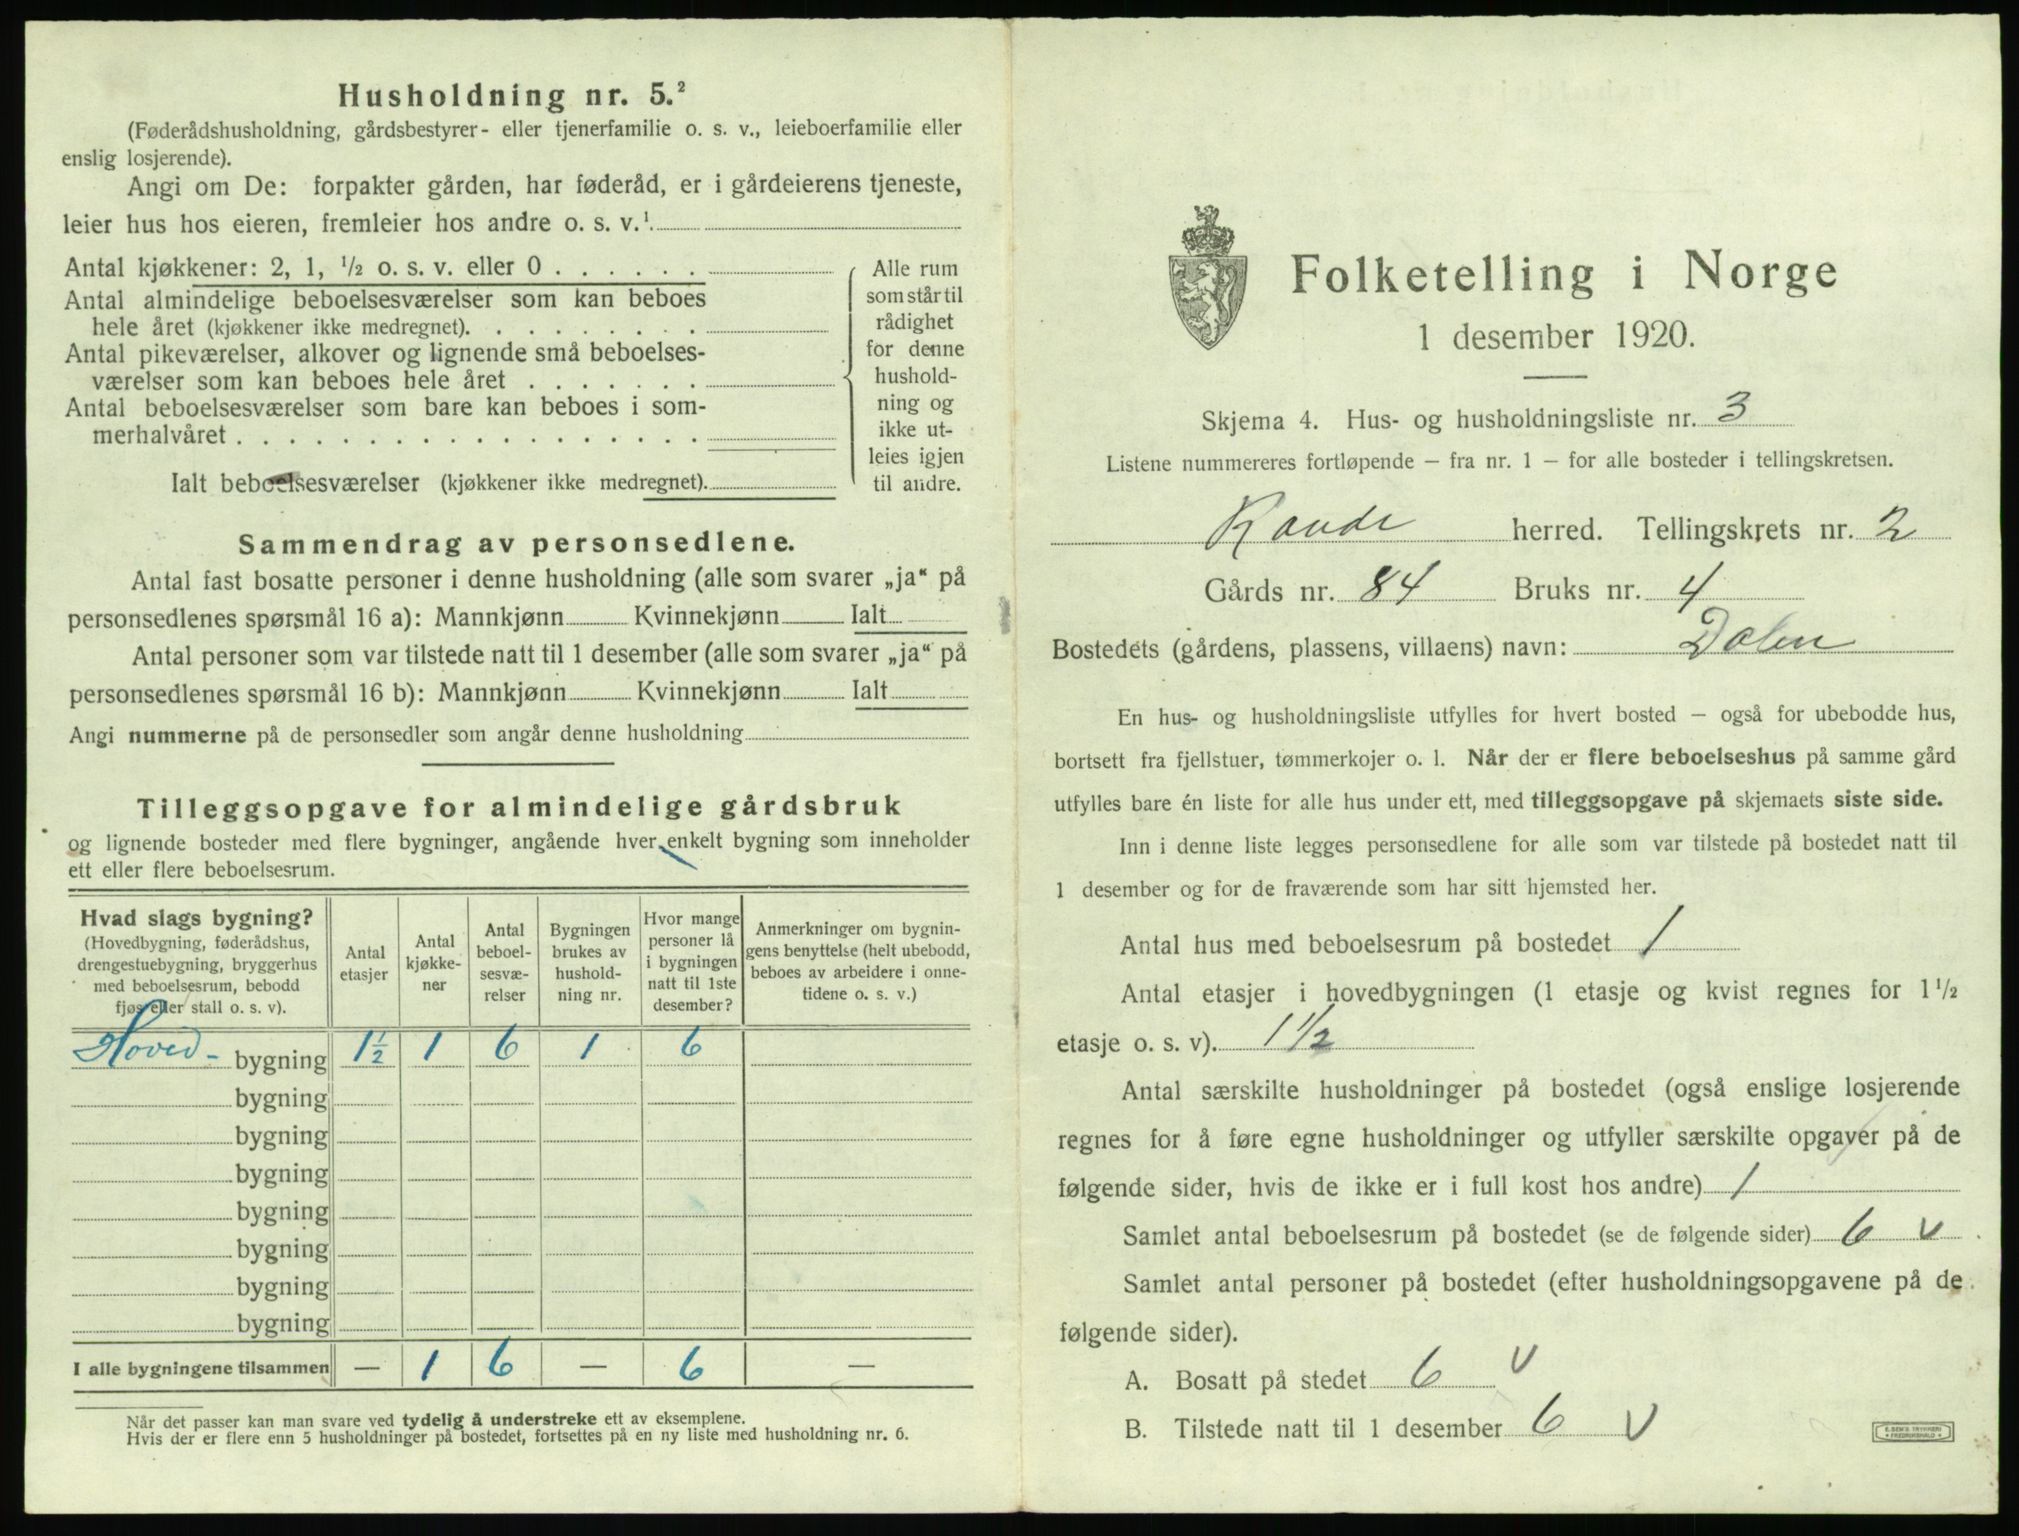 Husholdning nr. 5.²
(Føderådshusholdning, gårdsbestyrer- eller tjenerfamilie o. s. v., leieboerfamilie eller
enslig losjerende).
Angi om De: forpakter gården, har føderåd, er i gårdeierens tjeneste,
leier hus hos eieren, fremleier hos andre o. s. v.¹
Antal kjøkkener: 2, 1, ½ o. s. v. eller 0 . . . . . .
Antal almindelige beboelsesværelser som kan beboes
hele året (kjøkkener ikke medregnet). . . . . . . . .
Antal pikeværelser, alkover og lignende små beboelses-
værelser som kan beboes hele året . . . . . . .
Antal beboelsesværelser som bare kan beboes i som-
merhalvåret . . . . . . . . . . . . . . . . . .
Ialt beboelsesværelser (kjøkkener ikke medregnet).
Alle rum
som står til
rådighet
for denne
hushold-
ning og
ikke ut-
leies igjen
til andre.
Sammendrag av personsedlene.
Antal fast bosatte personer i denne husholdning (alle som svarer „ja“ på
personsedlenes spørsmål 16 a): Mannkjønn Kvinnekjønn Ialt
Antal personer som var tilstede natt til 1 desember (alle som svarer „ja“ på
personsedlenes spørsmål 16 b): Mannkjønn Kvinnekjønn Ialt
Angi nummerne på de personsedler som angår denne husholdning
Tilleggsopgave for almindelige gårdsbruk
og lignende bosteder med flere bygninger, angående hver enkelt bygning som inneholder
ett eller flere beboelsesrum.
Hvad slags bygning?
(Hovedbygning, føderådshus,
drengestuebygning, bryggerhus
med beboelsesrum, bebodd
fjøs eller stall o. s. v).
Antal
etasjer
Antal
kjøkke-
ner
Antal
beboel-
sesvæ-
relser
Bygningen
brukes av
hushold-
ning nr.
Hvor mange
personer lå
i bygningen
natt til 1ste
desember?
Anmerkninger om bygnin-
gens benyttelse (helt ubebodd,
beboes av arbeidere i onne-
tidene o. s. v.)
Hoved- bygning 1½ 1 6 1 6
bygning
bygning
bygning
bygning
bygning
bygning
bygning
I alle bygningene tilsammen — 1 6 — 6 —
Når det passer kan man svare ved tydelig å understreke ett av eksemplene.
Hvis der er flere enn 5 husholdninger på bostedet, fortsettes på en ny liste med husholdning nr. 6.
Folketelling i Norge
1 desember 1920.
Skjema 4. Hus- og husholdningsliste nr. 3
Listene nummereres fortløpende – fra nr. 1 – for alle bosteder i tellingskretsen.
Raade herred. Tellingskrets nr. 2
Gårds nr. 84 Bruks nr. 4
Bostedets (gårdens, plassens, villaens) navn: Dalen
En hus- og husholdningsliste utfylles for hvert bosted – også for ubebodde hus,
bortsett fra fjellstuer, tømmerkojer o. l. Når der er flere beboelseshus på samme gård
utfylles bare én liste for alle hus under ett, med tilleggsopgave på skjemaets siste side.
Inn i denne liste legges personsedlene for alle som var tilstede på bostedet natt til
1 desember og for de fraværende som har sitt hjemsted her.
Antal hus med beboelsesrum på bostedet 1
Antal etasjer i hovedbygningen (1 etasje og kvist regnes for 1½
etasje o. s. v). 1½
Antal særskilte husholdninger på bostedet (også enslige losjerende
regnes for å føre egne husholdninger og utfyller særskilte opgaver på de
følgende sider, hvis de ikke er i full kost hos andre) 1
Samlet antal beboelsesrum på bostedet (se de følgende sider) 6 v
Samlet antal personer på bostedet (efter husholdningsopgavene på de
følgende sider).
A. Bosatt på stedet 6 v
B. Tilstede natt til 1 desember 6 v
E. SEM'S TRYKKERI
FREDRIKSHALD